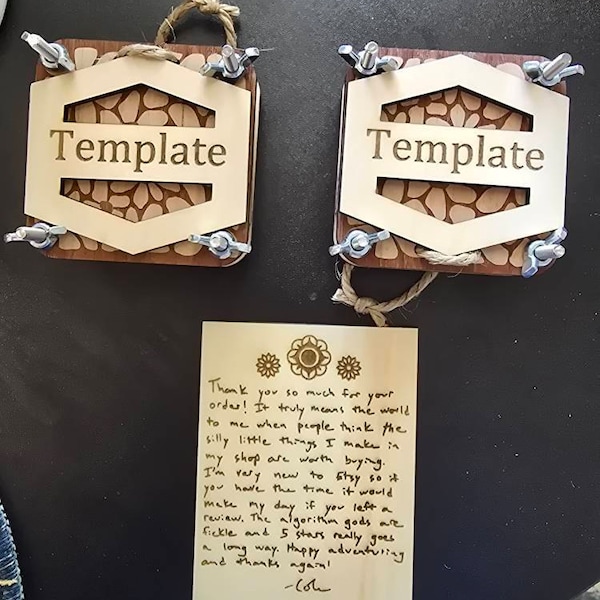 Template
Template
Thank you so much for your
order! It truly means the world
to me when people think the
silly little things I make in
my shop are worth buying.
I'm very new to Etsy so if
you have the time it would
make my day if you left a
review. The algorithm gods are
fickle and 5 stars really goes
a long way. Happy adventuring
and thanks again!
-Cole